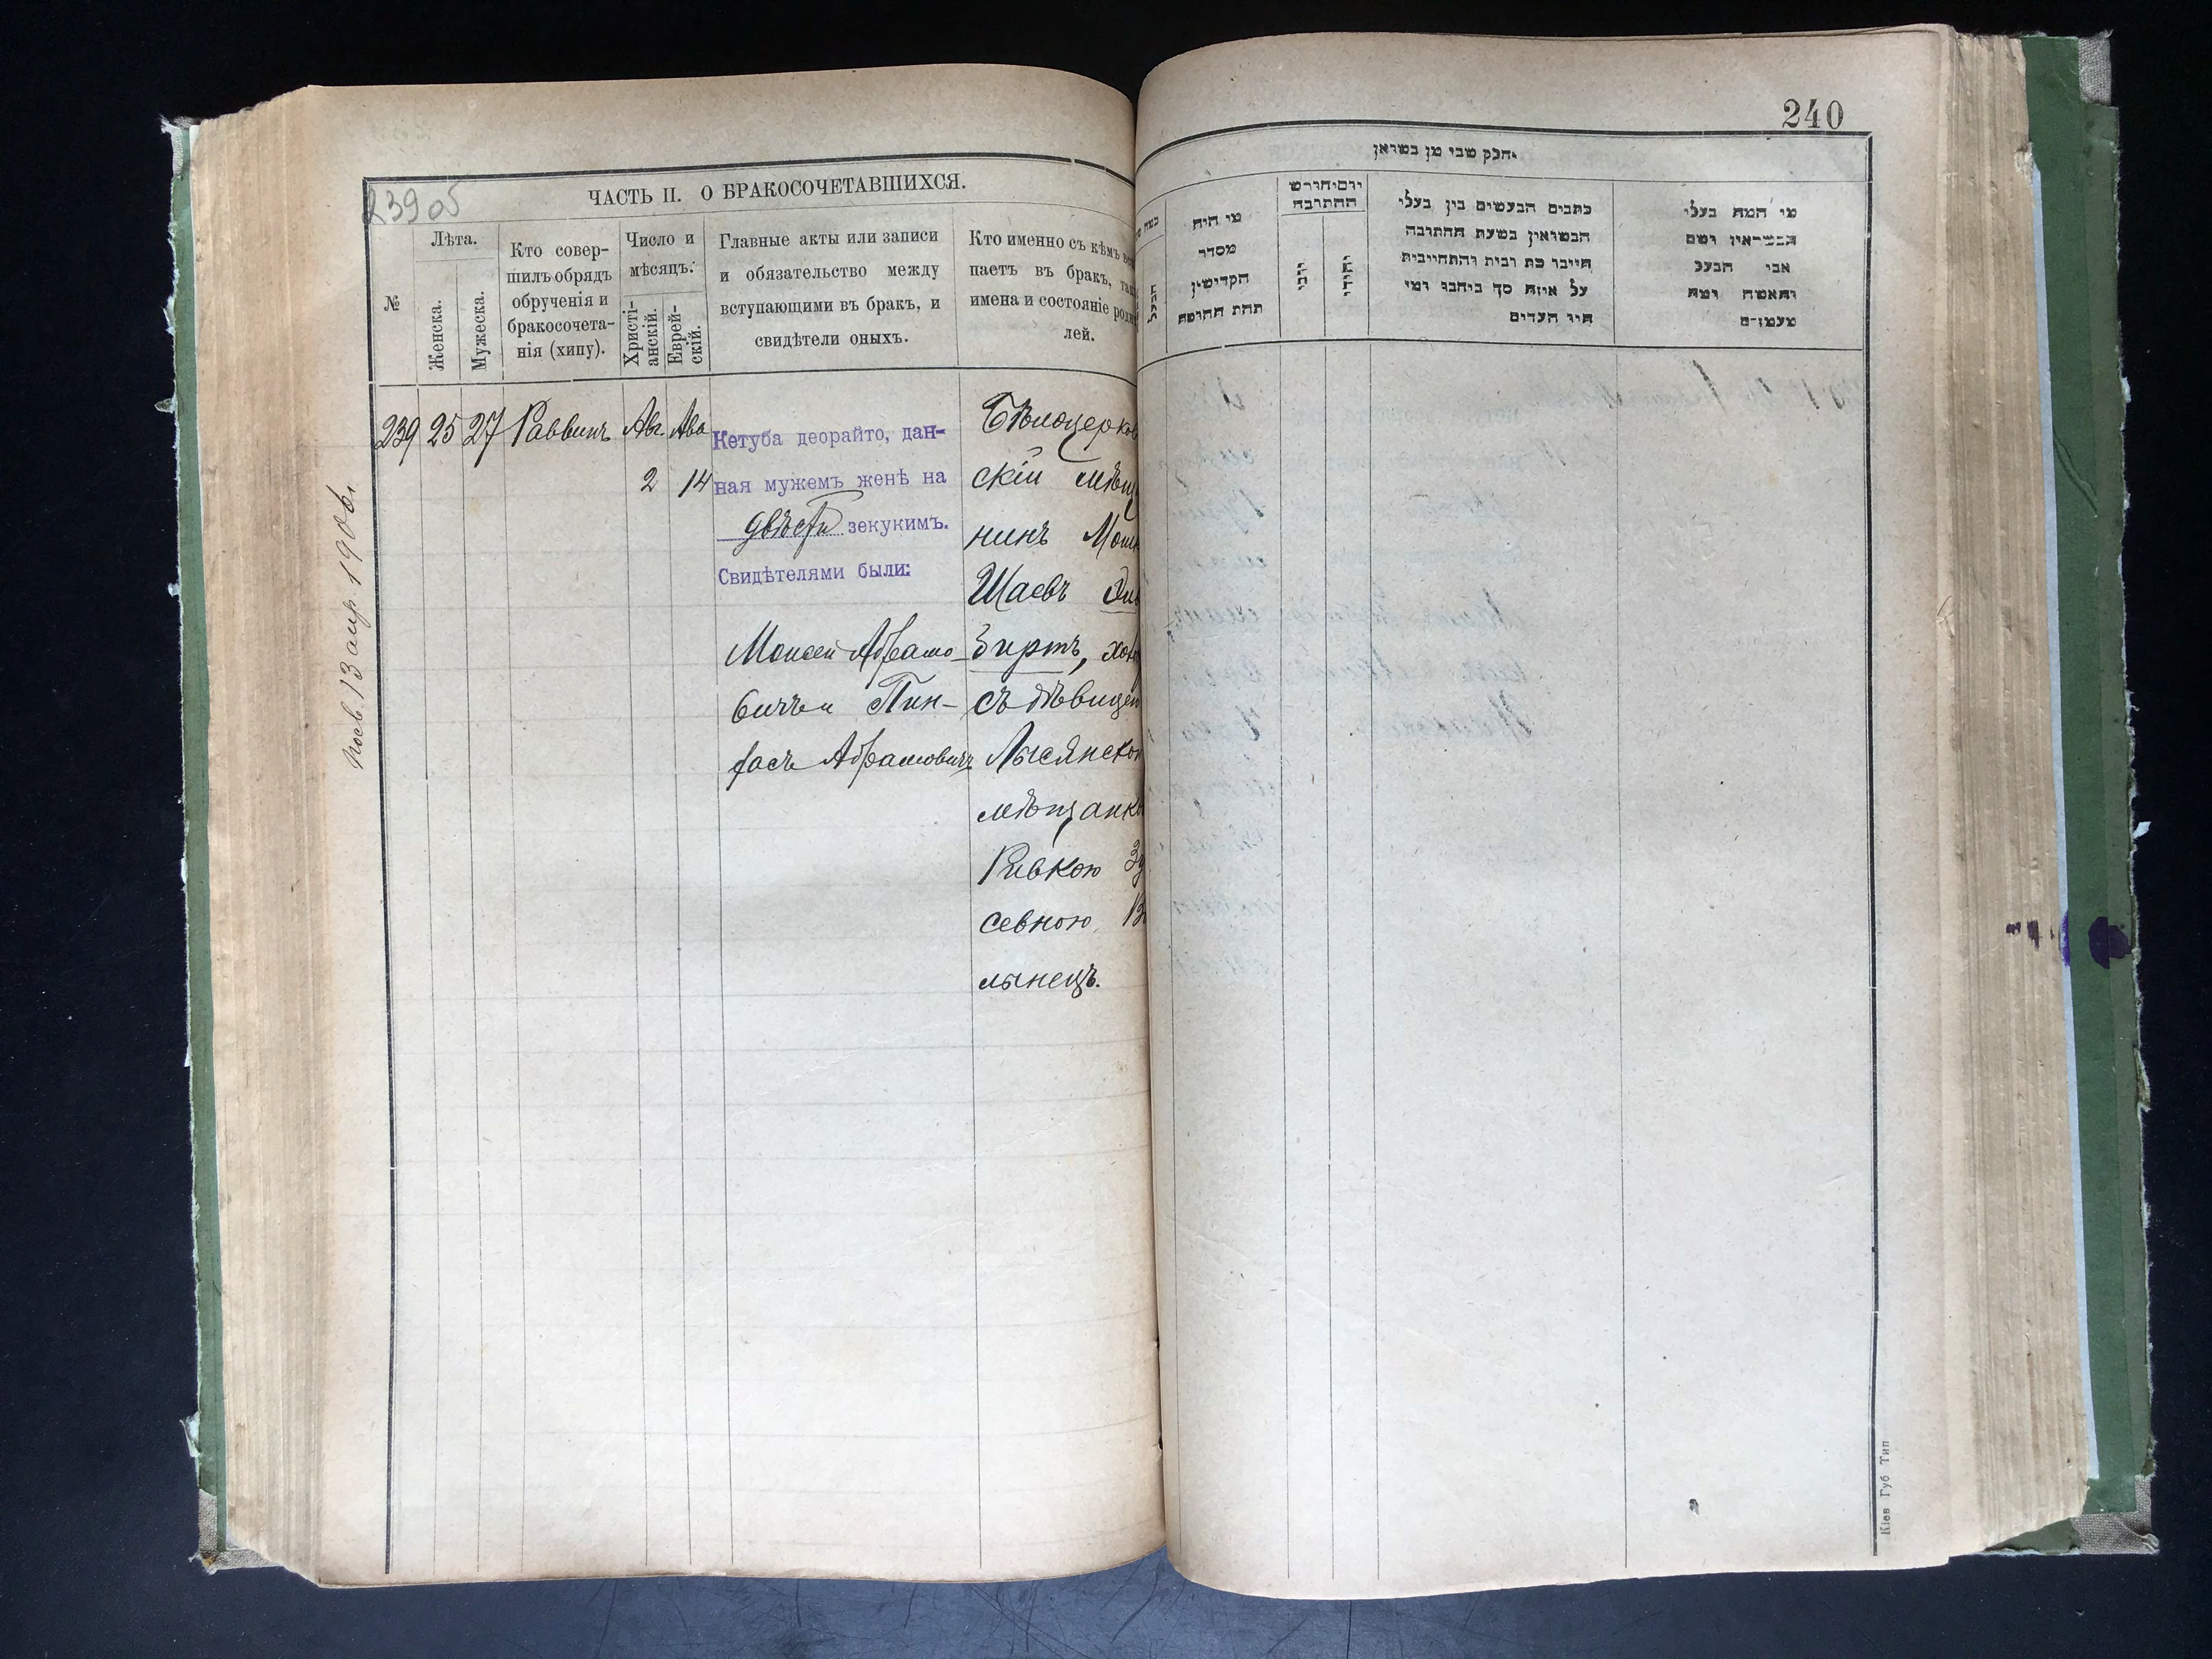 239 об
ЧАСТЬ II. О БРАКОСОЧЕТАВШИХСЯ.
№
Лѣта.
Женска.
Мужеска.
Кто совер-
шилъ обрядъ
обрученія и
бракосочета-
нія (хипу).
Число и
мѣсяцъ.
Христі-
анскій.
Еврей-
скій.
Главные акты или записи
и обязательство между
вступающими въ бракъ, и
свидѣтели оныхъ.
Кто именно съ кѣмъ
паетъ въ бракъ,
имена и состояніе
лей.
239 25 27 Раввинъ Авг. Ава
2 14
Кетуба деорайто, дан-
ная мужемъ женѣ на
двѣсти зекукимъ.
Свидѣтелями были:
Моисей Абрамо-
вичъ и Пин-
хасъ Абрамовичъ
Бѣлоцерков
скій мѣщ
нинъ
Шаевъ
зиртъ,
съ дѣвицей
Лысянской
мѣщанк
Ривкою
севною
лынецъ.
Посв. 13 апр. 1906 г.
240
חלק שני מן נשואין
מי היה
מסדר
הקדישין
תחת החופה
יום וחורש
החתונה
יוני
יהודי
כתבים הנעשים בין בעלי
הנשואין בשעת החתונה
היינו כת ובית והתחייבות
על איזה סך ביחבו ומי
היו העדים
מי המה בעלי
הנשואין ושם
אבי הבעל
והאשה ומה
מעמדם
Кіев Губ Тип